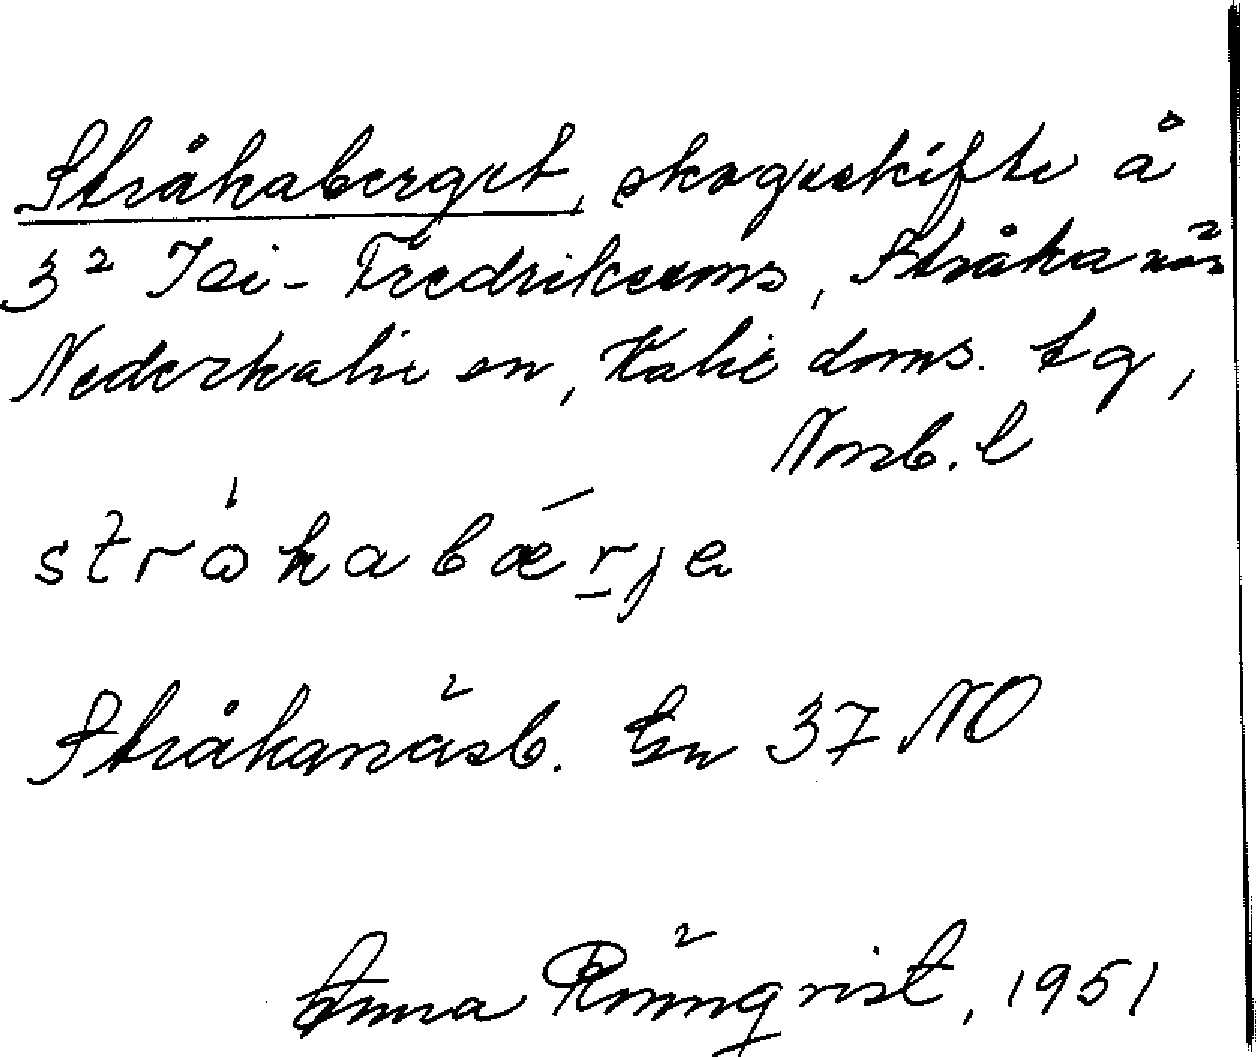 Stråkaberget, skogsskifte å
3² Isi-Fredrikssons, Stråkanäs
Nederkalix sn, Kalix doms. tg,
Norrb. l
stråkabærja
Stråkanäsb. En 37 NO
Anna Rönnqvist, 1951